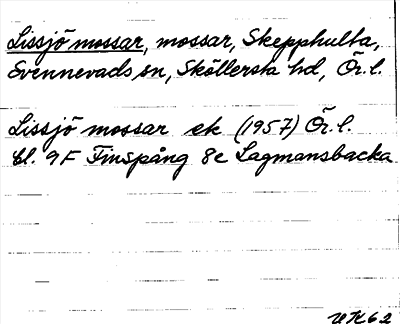 Lissjö mossar, mossar, Skepphulta,
Svennevads sn, Sköllersta hd, Ör. l.
Lissjö mossar ek (1957) Ör. l.
bl. 9F Finspång 8e Lagmansbacka